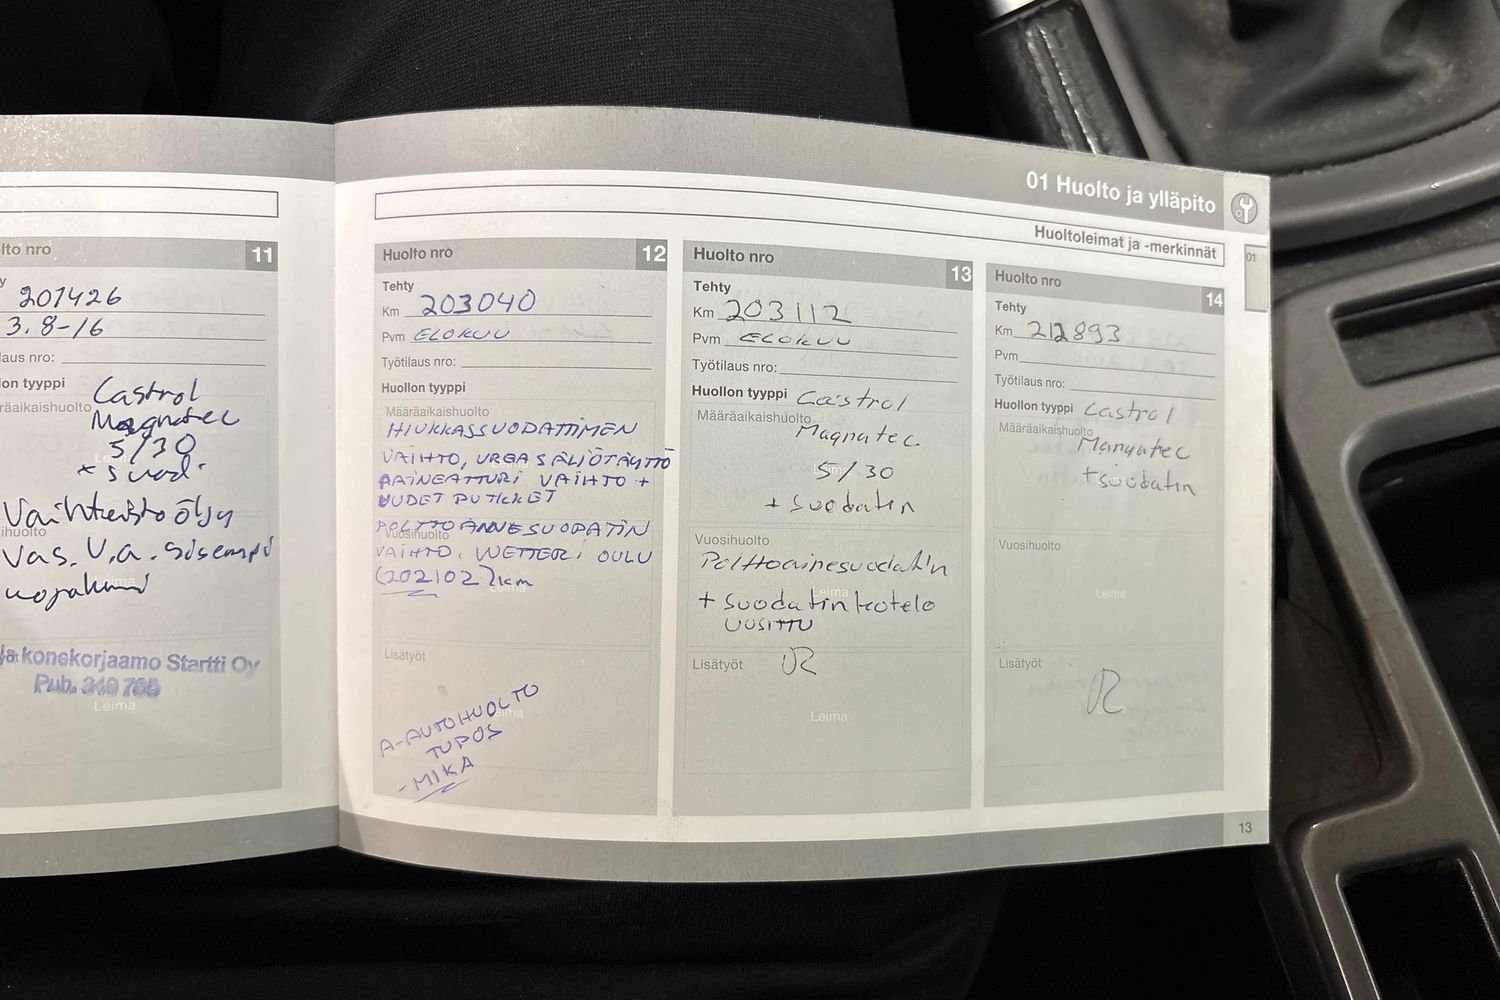 01 Huolto ja ylläpito
Huoltoleimat ja -merkinnät
01
lto nro 11
201426
3.8-16
laus nro:
lon tyyppi
Castrol
räaikaishuolto
Magnatec
5/30
+ suod.
Vaihteisto öljy
ihuolto
Vas. V.a. sisempi
Leima
konekorjaamo Startti Oy
Puh. 340 765
Leima
Huolto nro 12
Tehty
Km 203040
Pvm ELOKUU
Työtilaus nro:
Huollon tyyppi
Määräaikaishuolto
HIUKKASSUODATTIMEN
VAIHTO, UREA SÄILIÖTÄYTTÖ
PAINEANTURI VAIHTO +
UUDET PUTKET
POLTTOAINESUODATIN
Vuosihuolto
VAIHTO. WETTERI OULU
(202102)km
Leima
Lisätyöt
A-AUTOHUOLTO
TUPOS
Leima
-MIKA
Huolto nro 13
Tehty
Km 203112
Pvm ELOKUU
Työtilaus nro:
Huollon tyyppi Castrol
Määräaikaishuolto
Magnatec
5/30
+ suodatin
Vuosihuolto
Polttoainesuodatin
Leima
+ suodatinkotelo
UUSITTU
Lisätyöt
Leima
Huolto nro 14
Tehty
Km 212893
Pvm
Työtilaus nro:
Huollon tyyppi Castrol
Määräaikaishuolto
Mangatec
+suodatin
Vuosihuolto
Leima
Lisätyöt
13